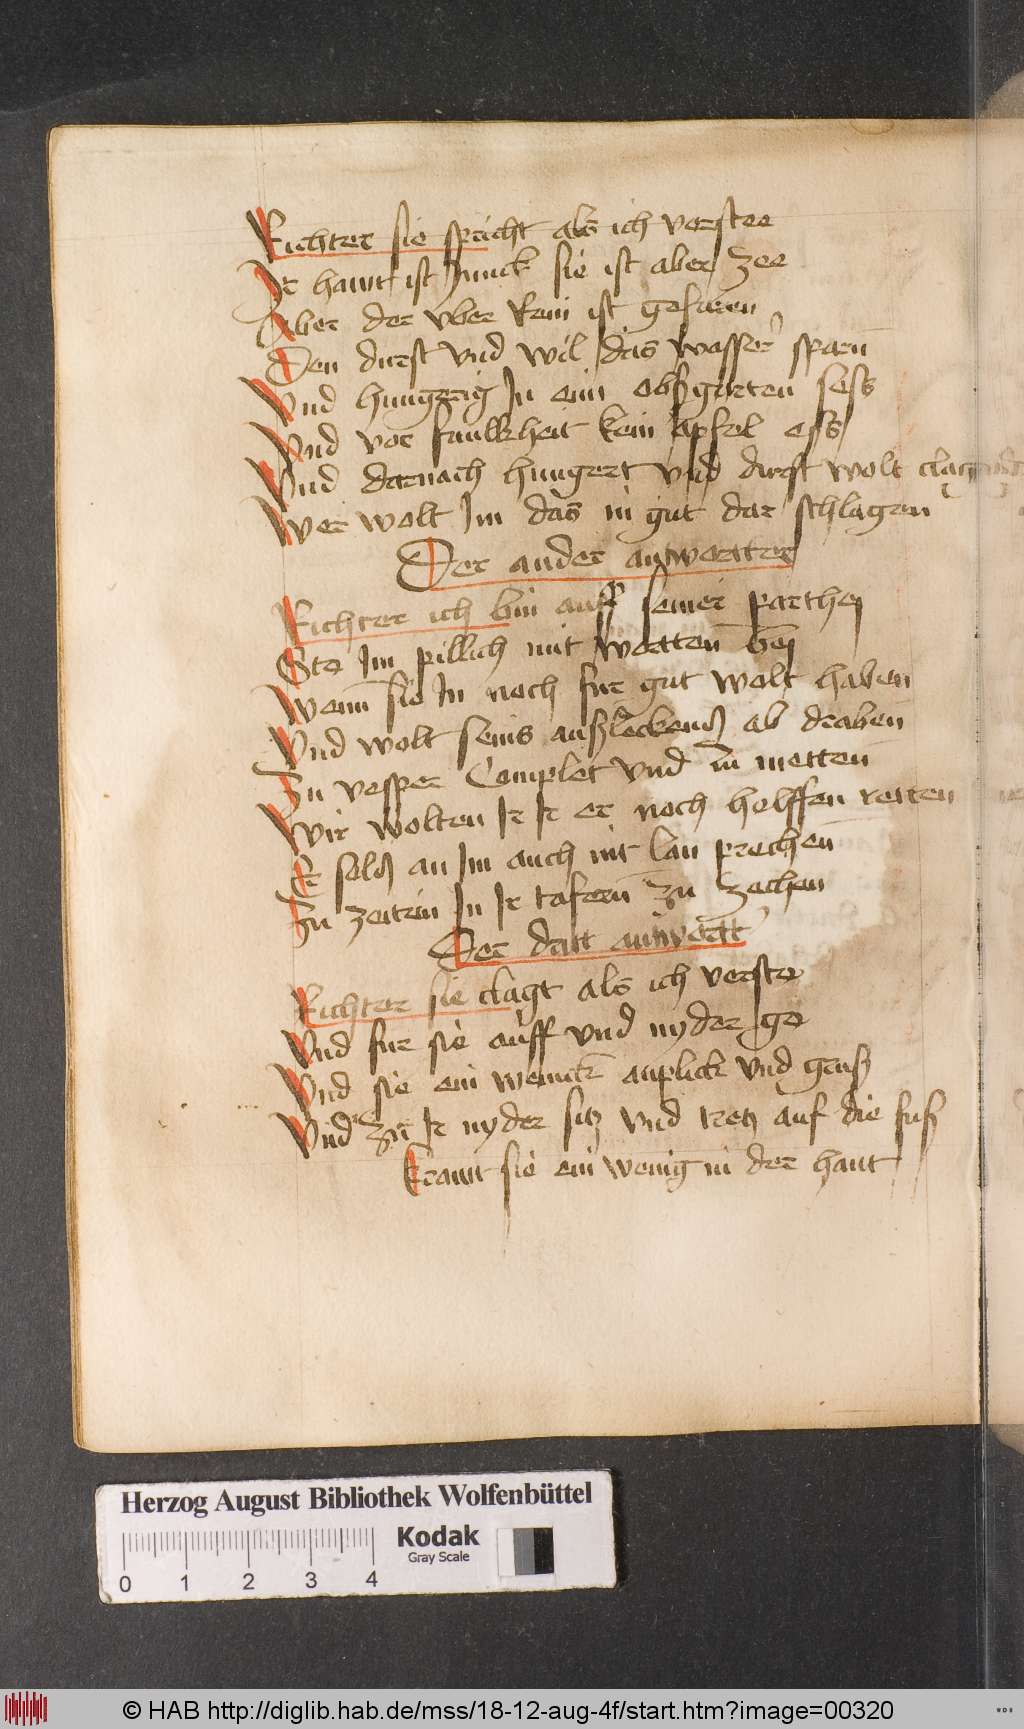 Richter sie spricht als ich verstee
Ir hawt ist Junck sie ist aber zee
Aber der vber Rein ist gefaren
Den durst vnd wil das wasser sparn
Vnd hungrig In ein obßgarten sess
Vnd vor faulkheit kein apfel ess
Vnd darnach hungert vnd durst wolt clagen
Wer wolt Im das in gut dar schlagen
Der ander antwortter
Richter ich bin auff seiner parthej
Ste Im pillich mit wortten bej
Wenn sie In noch fur gut wolt haben
Vnd wolt seins außleckens ab draben
Zu vesper Complet vnd metten
Wir wolten Ir Ir er noch helffen retten
Er sold an Im auch nit lan prechen
Zu zeiten In Ir tafern zu zechen
Der dritt antwortt
Richter sie clagt als ich verste
Vnd fur sie auff vnd nyder ge
Vnd sie ein wenick anplick vnd gruß
Vnd zu Ir nyder sitz vnd tretz auf die fuß
Krawt sie ein wenig in der hant
Herzog August Bibliothek Wolfenbüttel
Kodak
Gray Scale
0 1 2 3 4
© HAB http://diglib.hab.de/mss/18-12-aug-4f/start.htm?image=00320